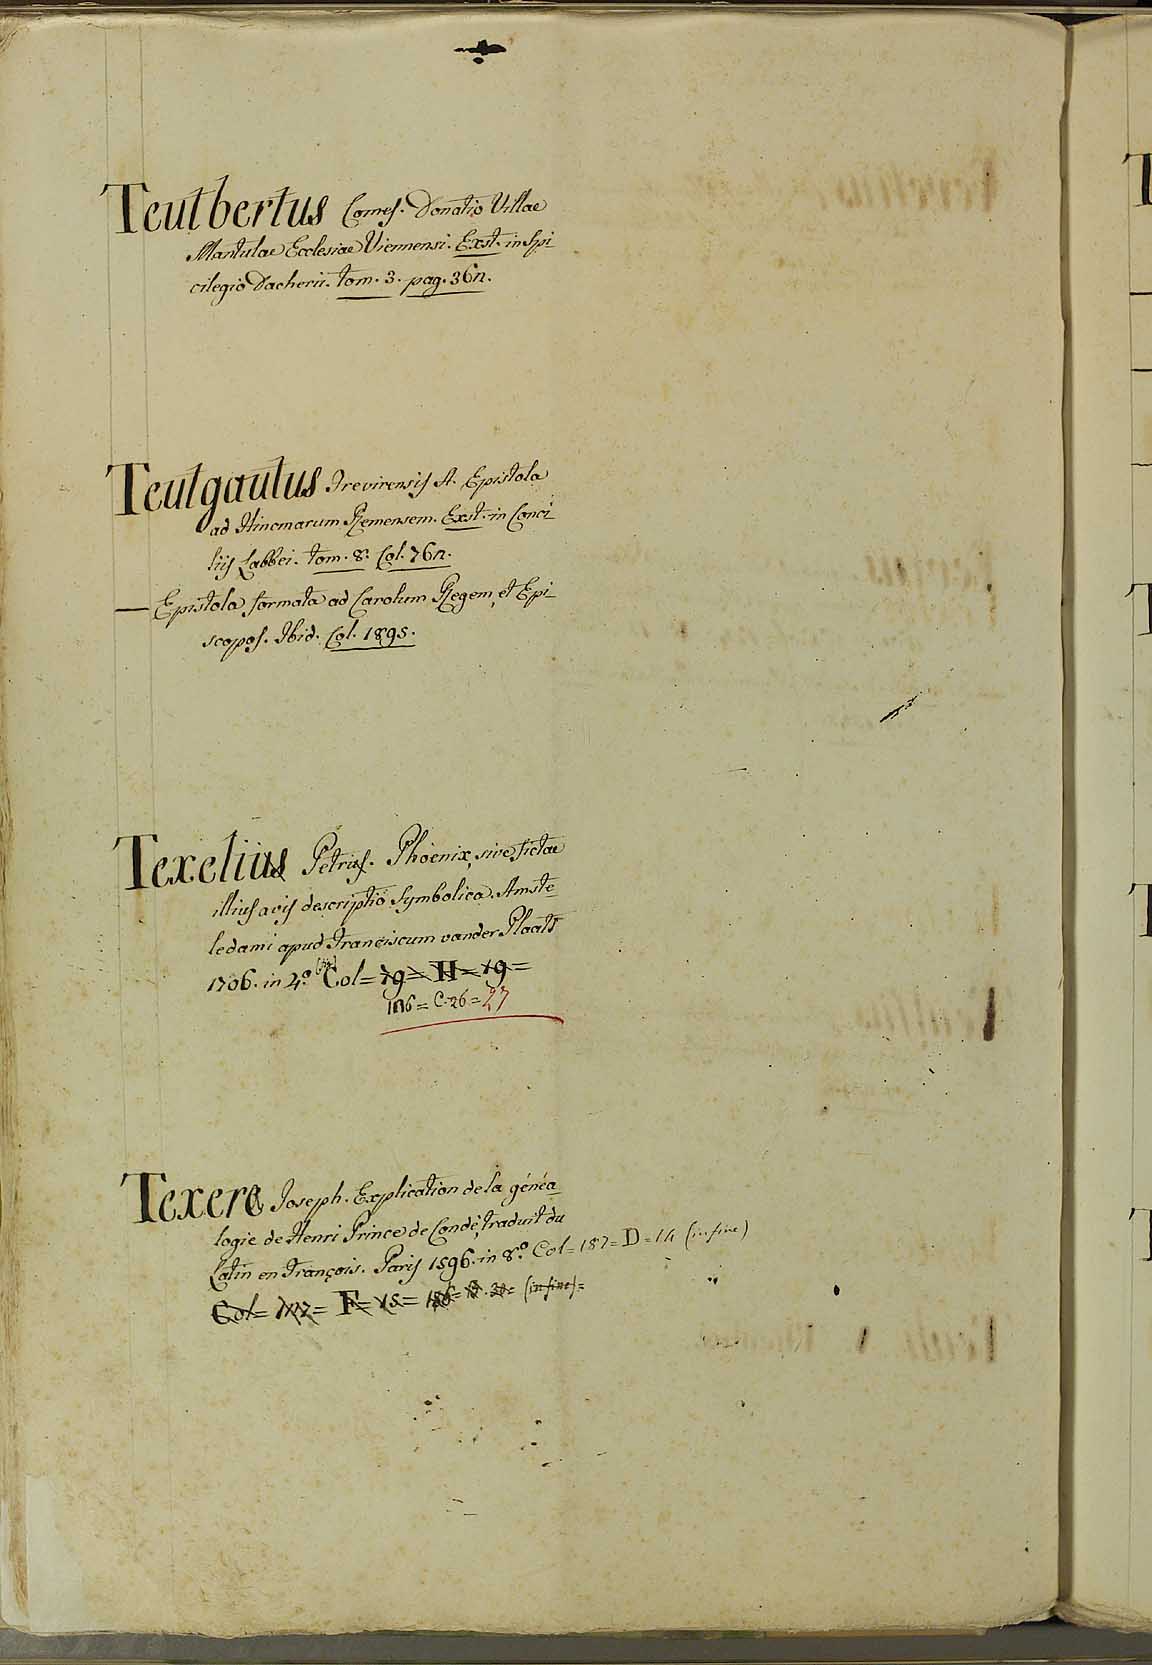 Teutbertus Comes. Donatio Villae
Mantulae Ecclesiae Viennensi. Exst. in Spi-
cilegio Dacherii. tom. 3. pag. 362.
Teutgautus Trevirensis A. Epistola
ad Hincmarum Remensem. Exst. in Conci-
liis Labbei. tom. 8. Col. 762.
— Epistola formata ad Carolum Regem, et Epi-
scopos. Ibid. Col. 1895.
Texelius Petrus. Phoenix, sive fictae
illius avis descriptio Symbolica. Amste-
ledami apud Franciscum vander Plaats
1706. in 4.° Col = 79 = H = 19 =
= C. 26 = 27
Texere Joseph. Explication de la généa-
logie de Henri Prince de Condé, traduit du
Latin en François. Paris 1596. in 8.° Col = 187 = D = 14 (in fine)
Col = = F = 15 = (in fine) =